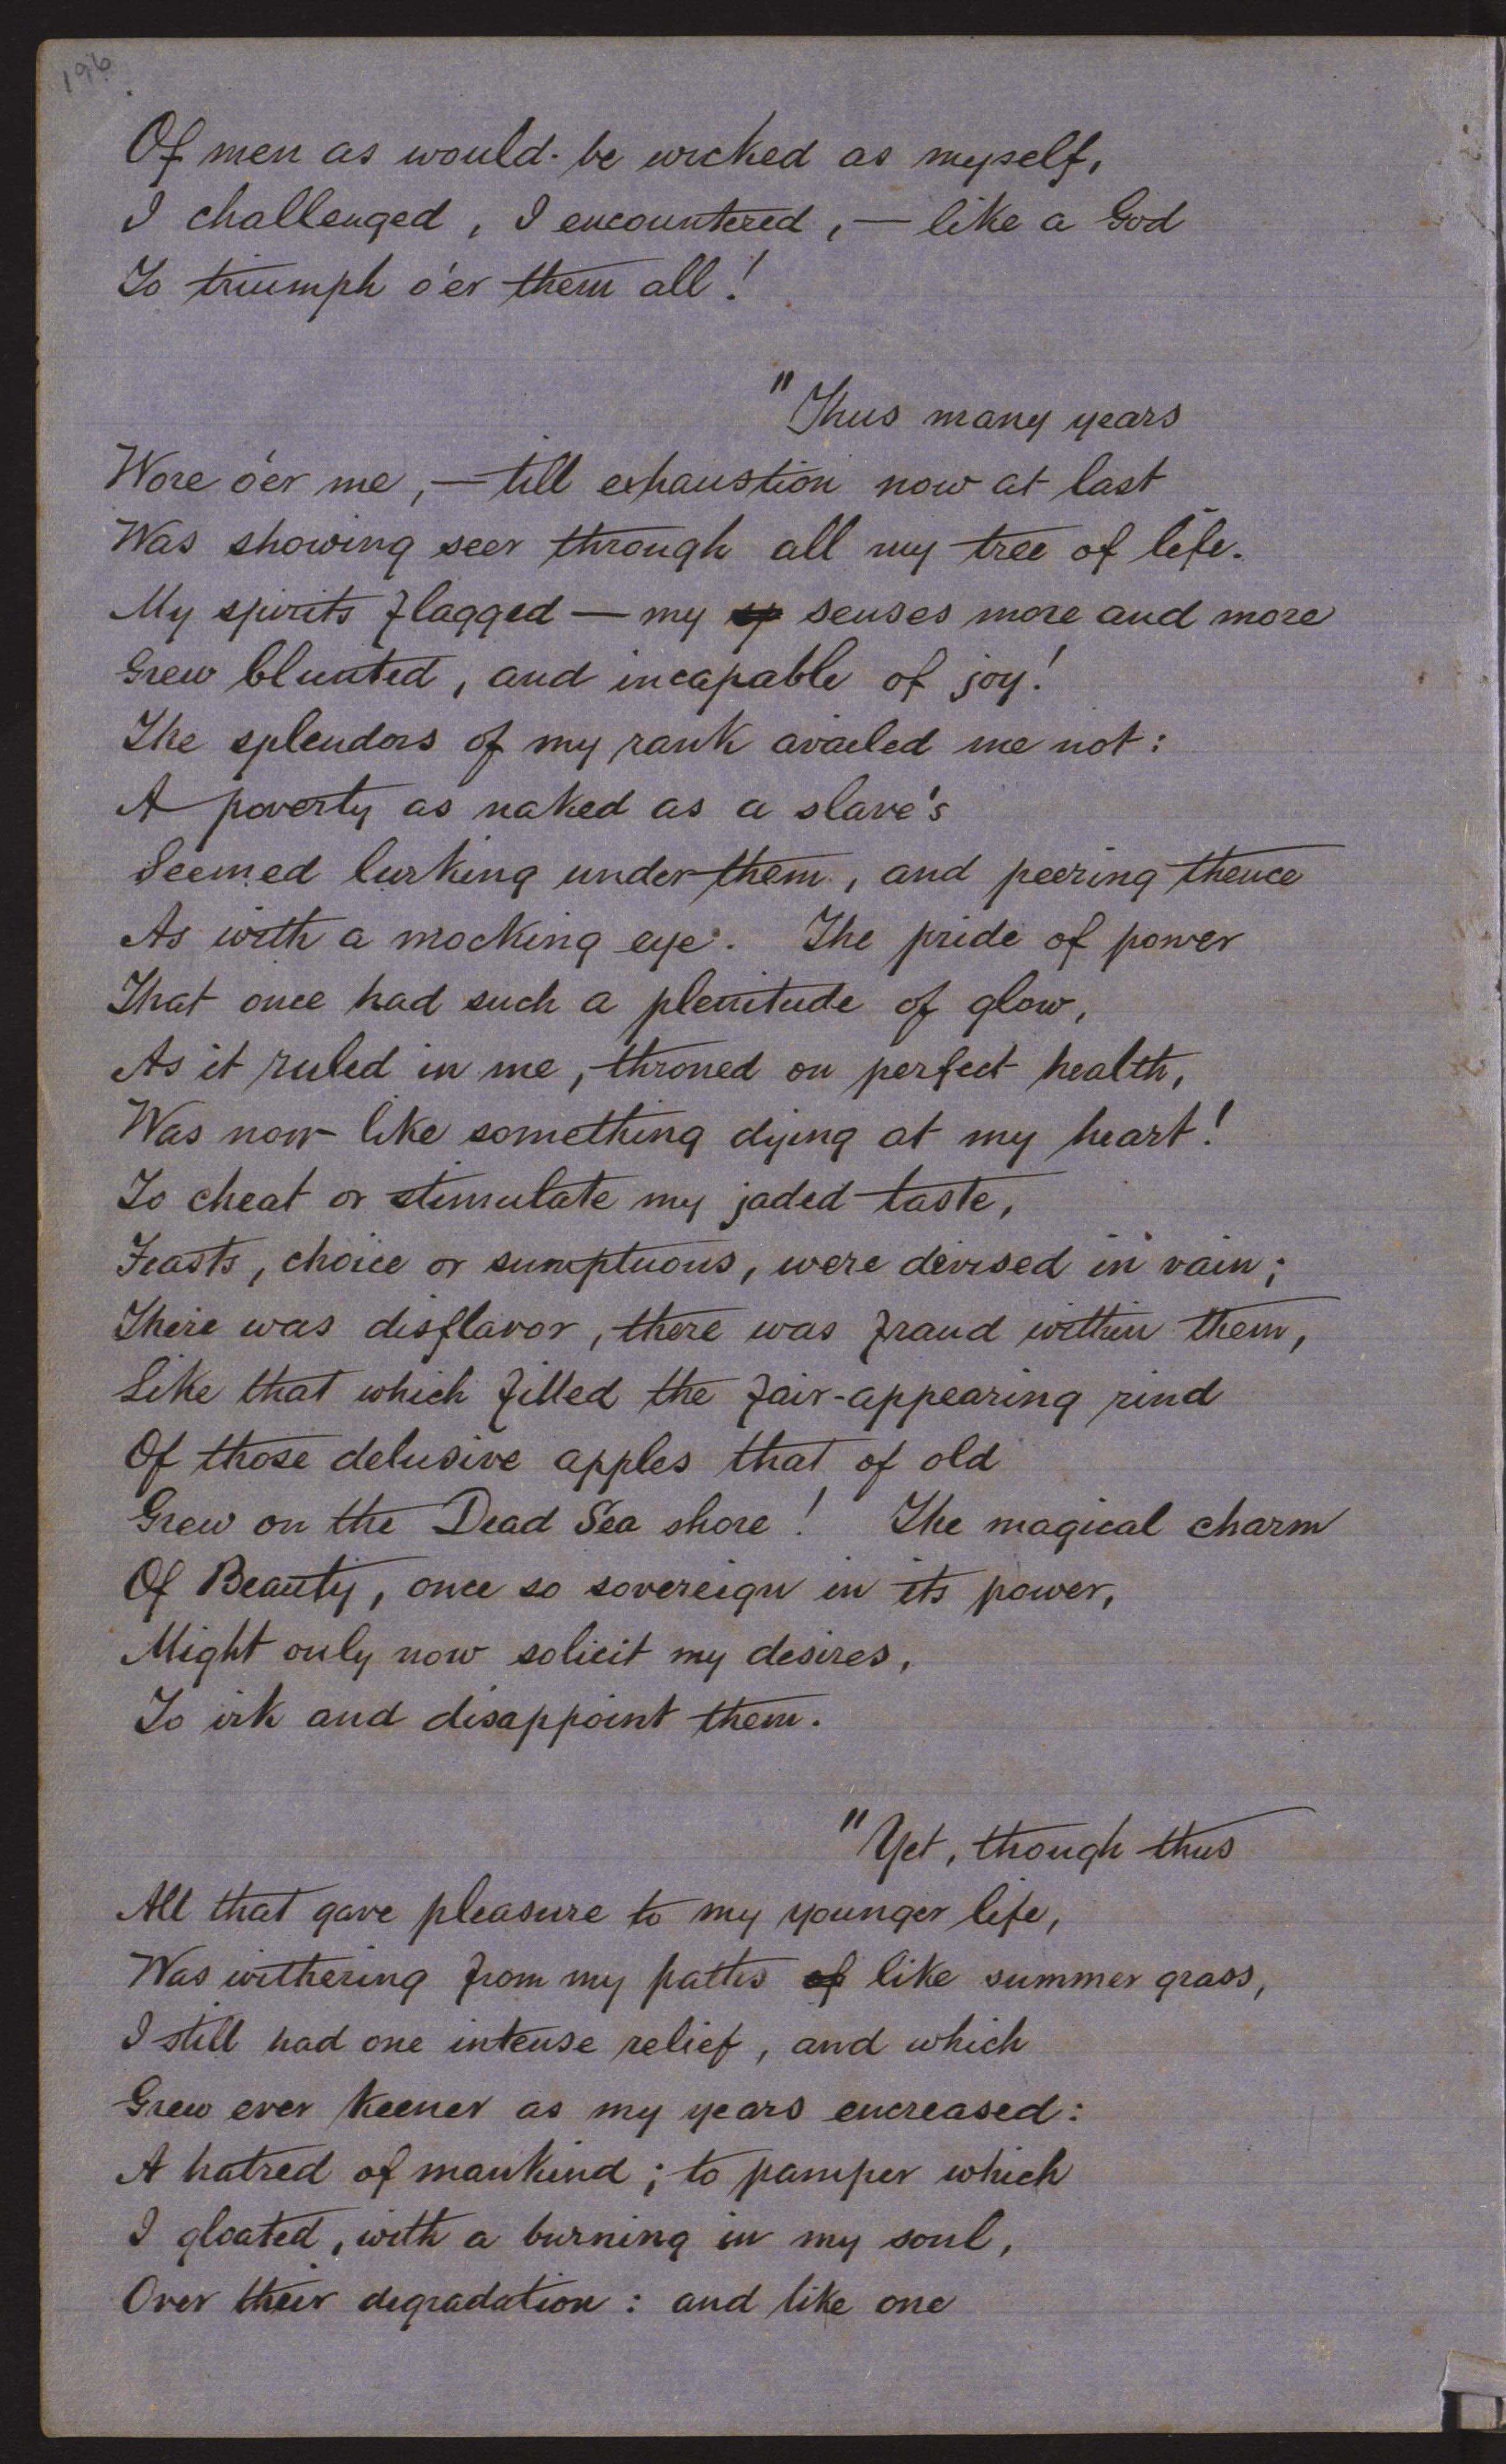 196.
Of men as would be wicked as myself,
I challenged, I encountered, — like a God
To triumph o'er them all!
"Thus many years
Wore o'er me, — till exhaustion now at last
Was showing seer through all my tree of life.
My spirits flagged — my sp senses more and more
Grew blunted, and incapable of joy!
The splendors of my rank availed me not:
A poverty as naked as a slave's
Seemed lurking under them, and peering thence
As with a mocking eye. The pride of power
That once had such a plenitude of glow,
As it ruled in me, throned on perfect health,
Was now like something dying at my heart!
To cheat or stimulate my jaded taste,
Feasts, choice or sumptuous, were devised in vain;
There was disflavor, there was fraud within them,
Like that which filled the fair-appearing rind
Of those delusive apples that of old
Grew on the Dead Sea shore! The magical charm
Of Beauty, once so sovereign in its power,
Might only now solicit my desires,
To irk and disappoint them.
"Yet, though thus
All that gave pleasure to my younger life,
Was withering from my paths of like summer grass,
I still had one intense relief, and which
Grew ever keener as my years encreased:
A hatred of mankind; to pamper which
I gloated, with a burning in my soul,
Over their degradation: and like one